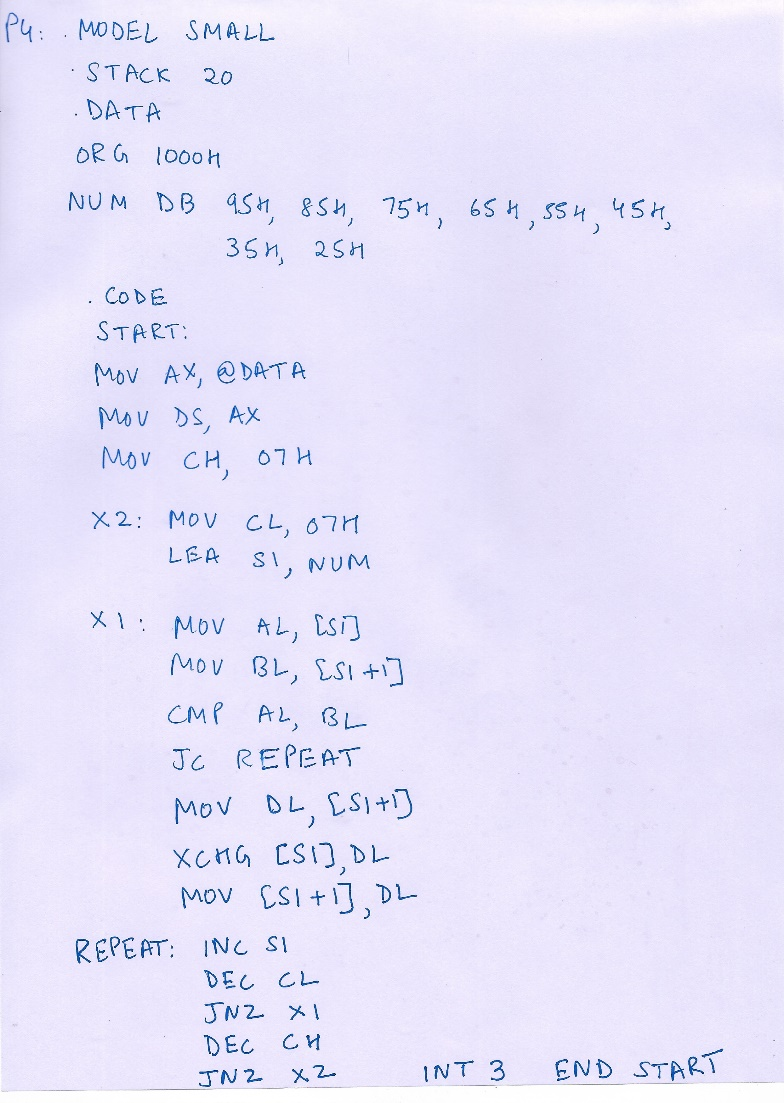 P4: .MODEL SMALL
.STACK 20
.DATA
ORG 1000H
NUM DB 95H, 85H, 75H, 65H, 55H, 45H,
35H, 25H
.CODE
START:
MOV AX, @DATA
MOV DS, AX
MOV CH, 07H
X2: MOV CL, 07H
LEA SI, NUM
X1: MOV AL, [SI]
MOV BL, [SI+1]
CMP AL, BL
JC REPEAT
MOV DL, [SI+1]
XCHG [SI], DL
MOV [SI+1], DL
REPEAT: INC SI
DEC CL
JNZ X1
DEC CH
JNZ X2 INT 3 END START